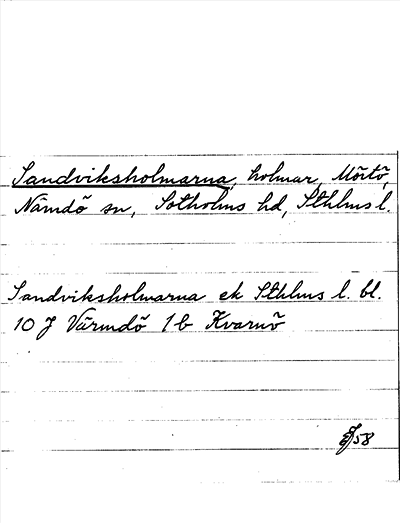 Sandviksholmarna, holmar, Mörtö,
Nämdö sn, Sotholms hd, Sthlms l.
Sandviksholmarna ek Sthlms l. bl.
10 J Värmdö 1b Kvarnö
58